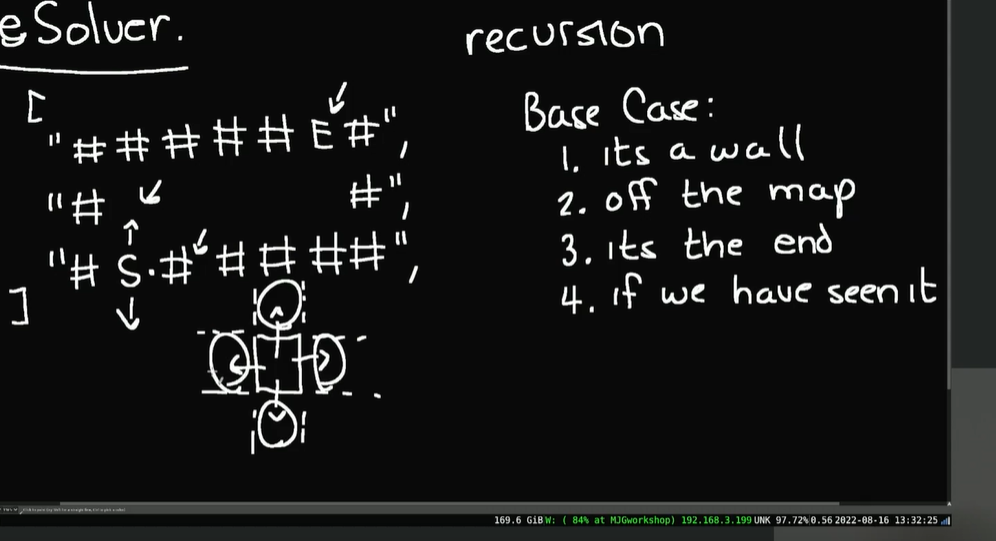 eSolver.
recursion
[
"#####E#",
"#     #",
"#S.#####",
]
Base Case:
1. its a wall
2. off the map
3. its the end
4. if we have seen it
169.6 GiB W: ( 84% at MJGworkshop) 192.168.3.199 UNK 97.72% 0.56 2022-08-16 13:32:25